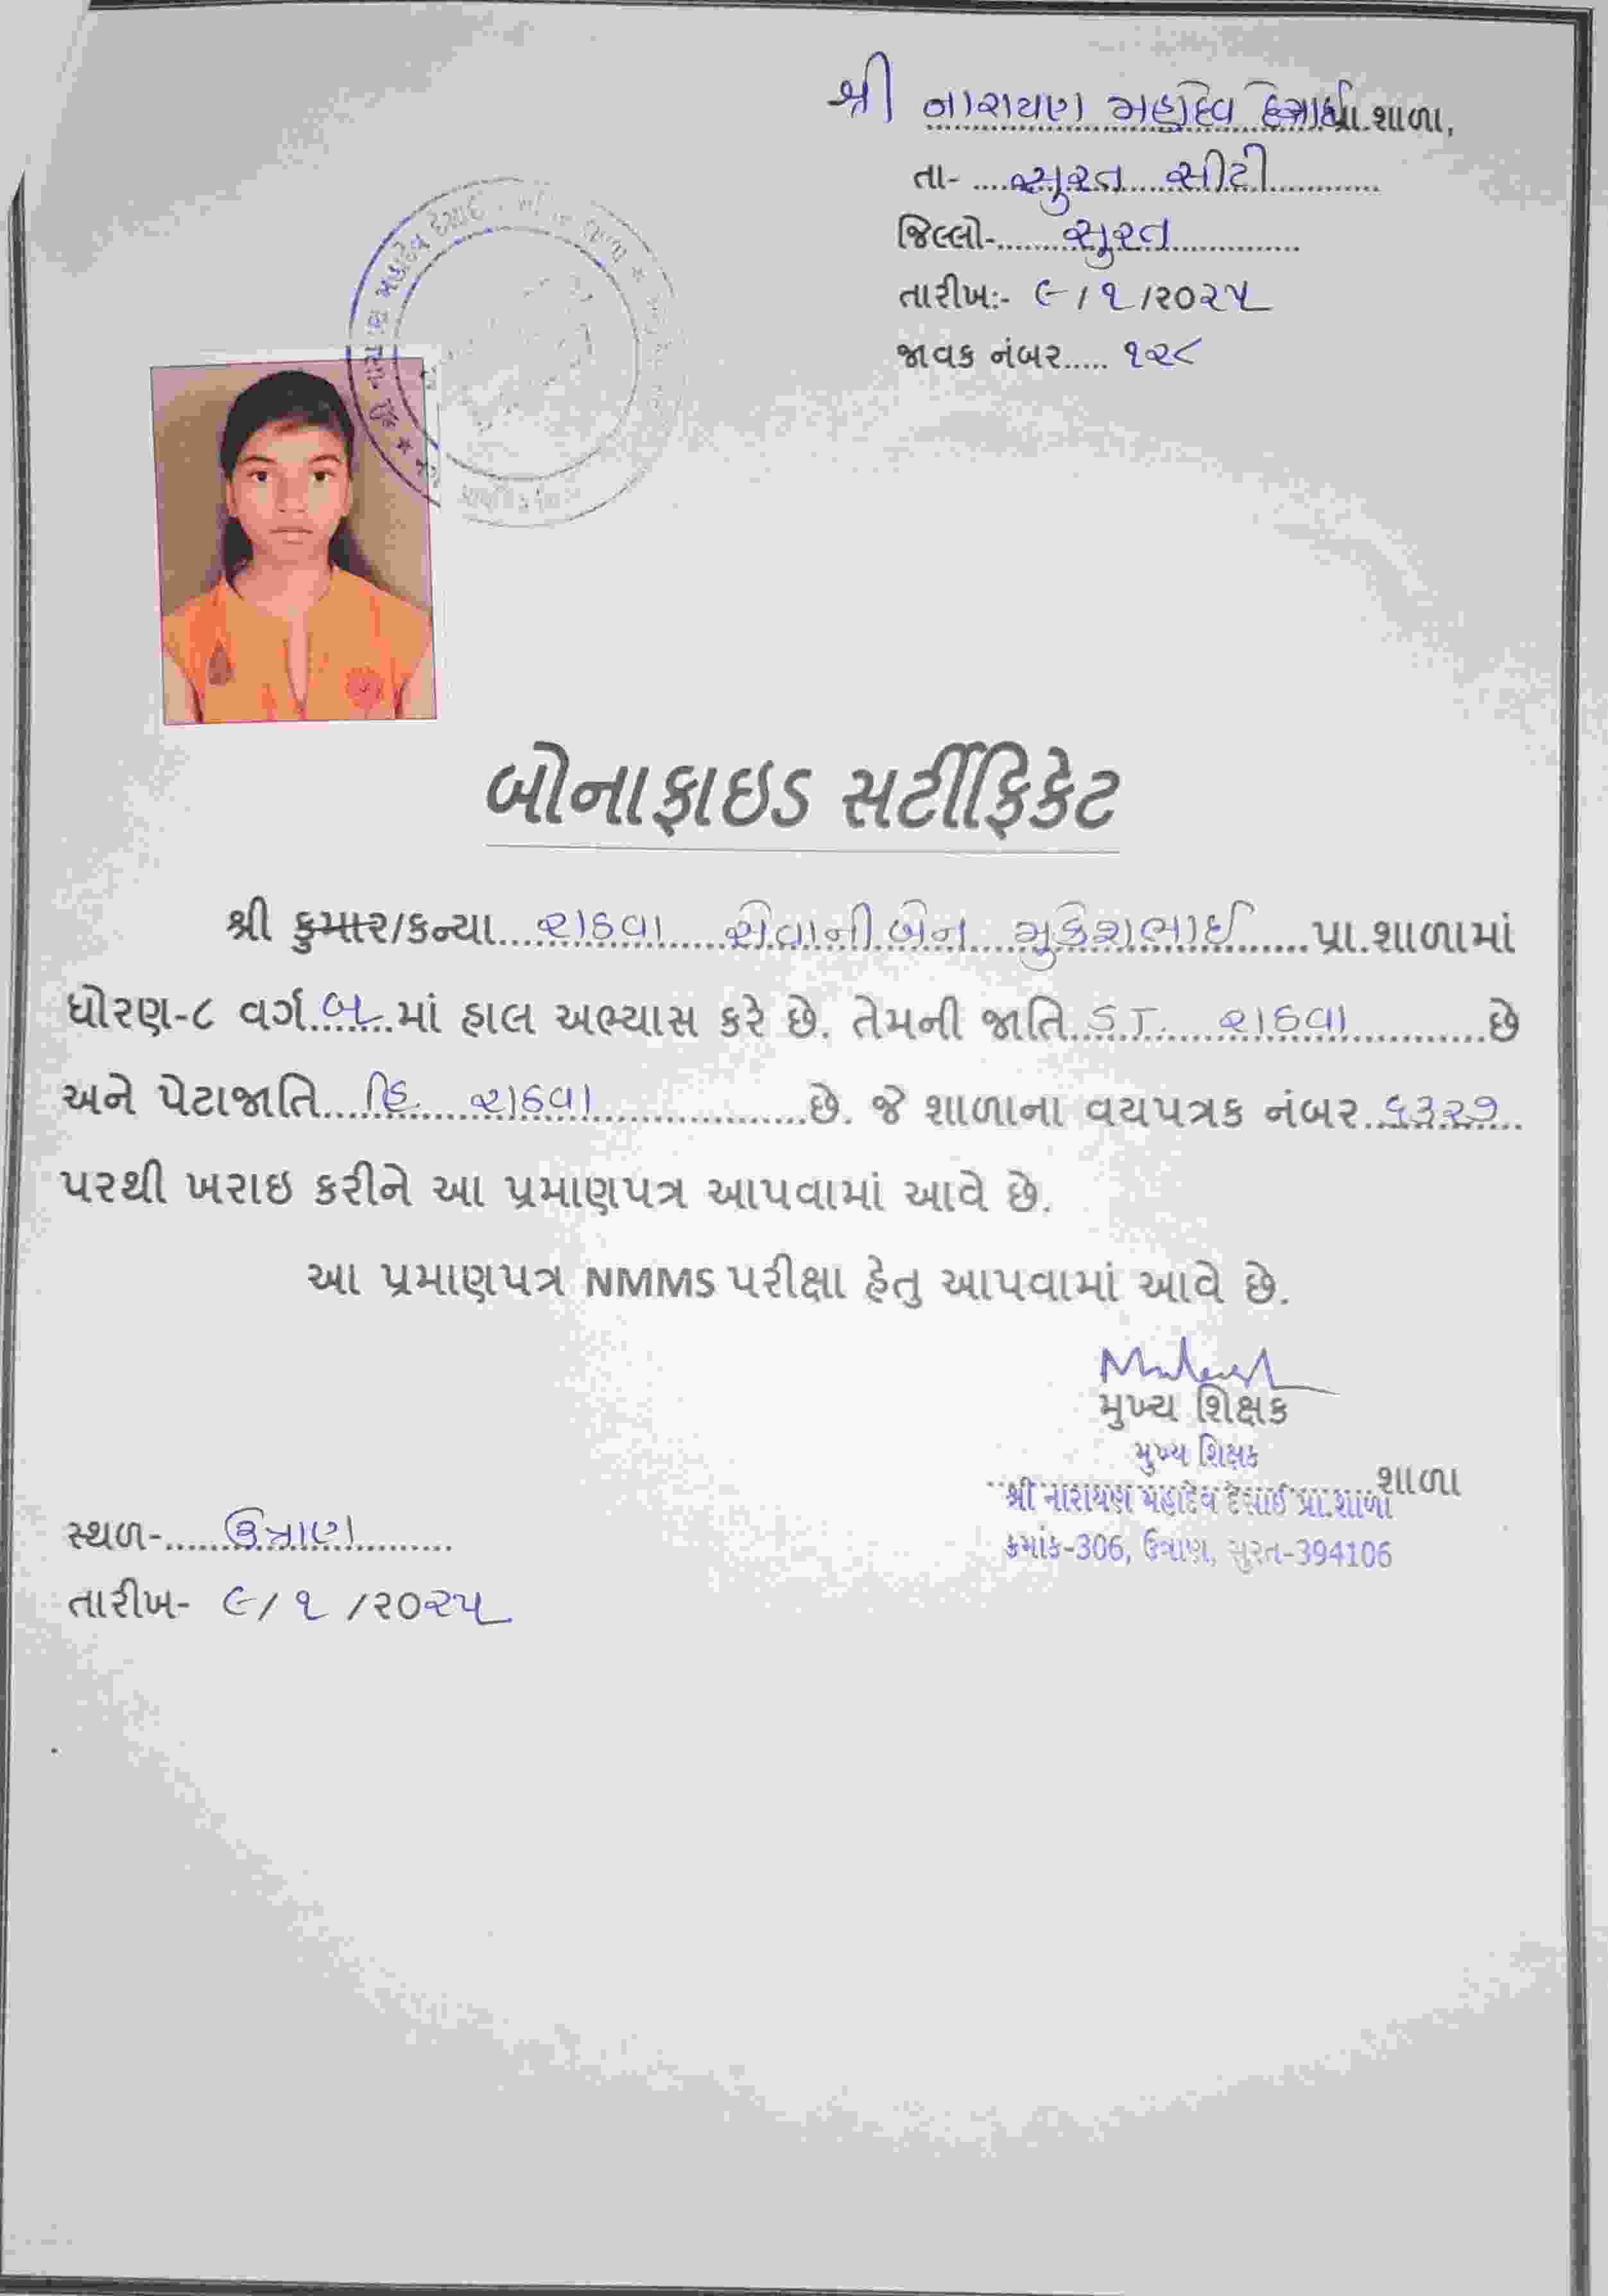 શ્રી નારાયણ મહાદેવ દેસાઈ પ્રા.શાળા,
તા- સુરત સીટી
જિલ્લો- સુરત
તારીખ:- ૯/૧/૨૦૨૫
જાવક નંબર..... ૧૨૮
મહાદેવ દેસાઈ
બોનાફાઇડ સર્ટીફિકેટ
શ્રી કુમાર/કન્યા રાઠવા સેવાનીબેન મુકેશભાઈ પ્રા.શાળામાં
ધોરણ-૮ વર્ગ બ માં હાલ અભ્યાસ કરે છે. તેમની જાતિ S.T. રાઠવા છે
અને પેટાજાતિ હિ. રાઠવા છે. જે શાળાના વયપત્રક નંબર ૬૩૨૭
પરથી ખરાઇ કરીને આ પ્રમાણપત્ર આપવામાં આવે છે.
આ પ્રમાણપત્ર NMMS પરીક્ષા હેતુ આપવામાં આવે છે.
મુખ્ય શિક્ષક
મુખ્ય શિક્ષક
શાળા
શ્રી નારાયણ મહાદેવ દેસાઈ પ્રા.શાળા
ક્રમાંક-306, ઉત્રાણ, સુરત-394106
સ્થળ- ઉત્રાણ
તારીખ- ૯/૧/૨૦૨૫